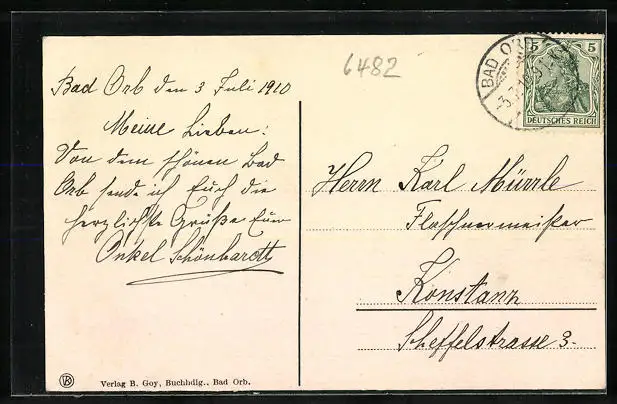 6482
BAD ORB
-3.7.10.
5 5
DEUTSCHES REICH
Bad Orb den 3 Juli 1910
Meine Lieben:
Von dem schönen Bad
Orb sende ich Euch die
herzlichste Grüße Euer
Onkel Schönhardt
Herrn Karl Mürrle
Flaschnermeister
Konstanz
Scheffelstrasse 3.
Verlag B. Goy, Buchhdlg., Bad Orb.